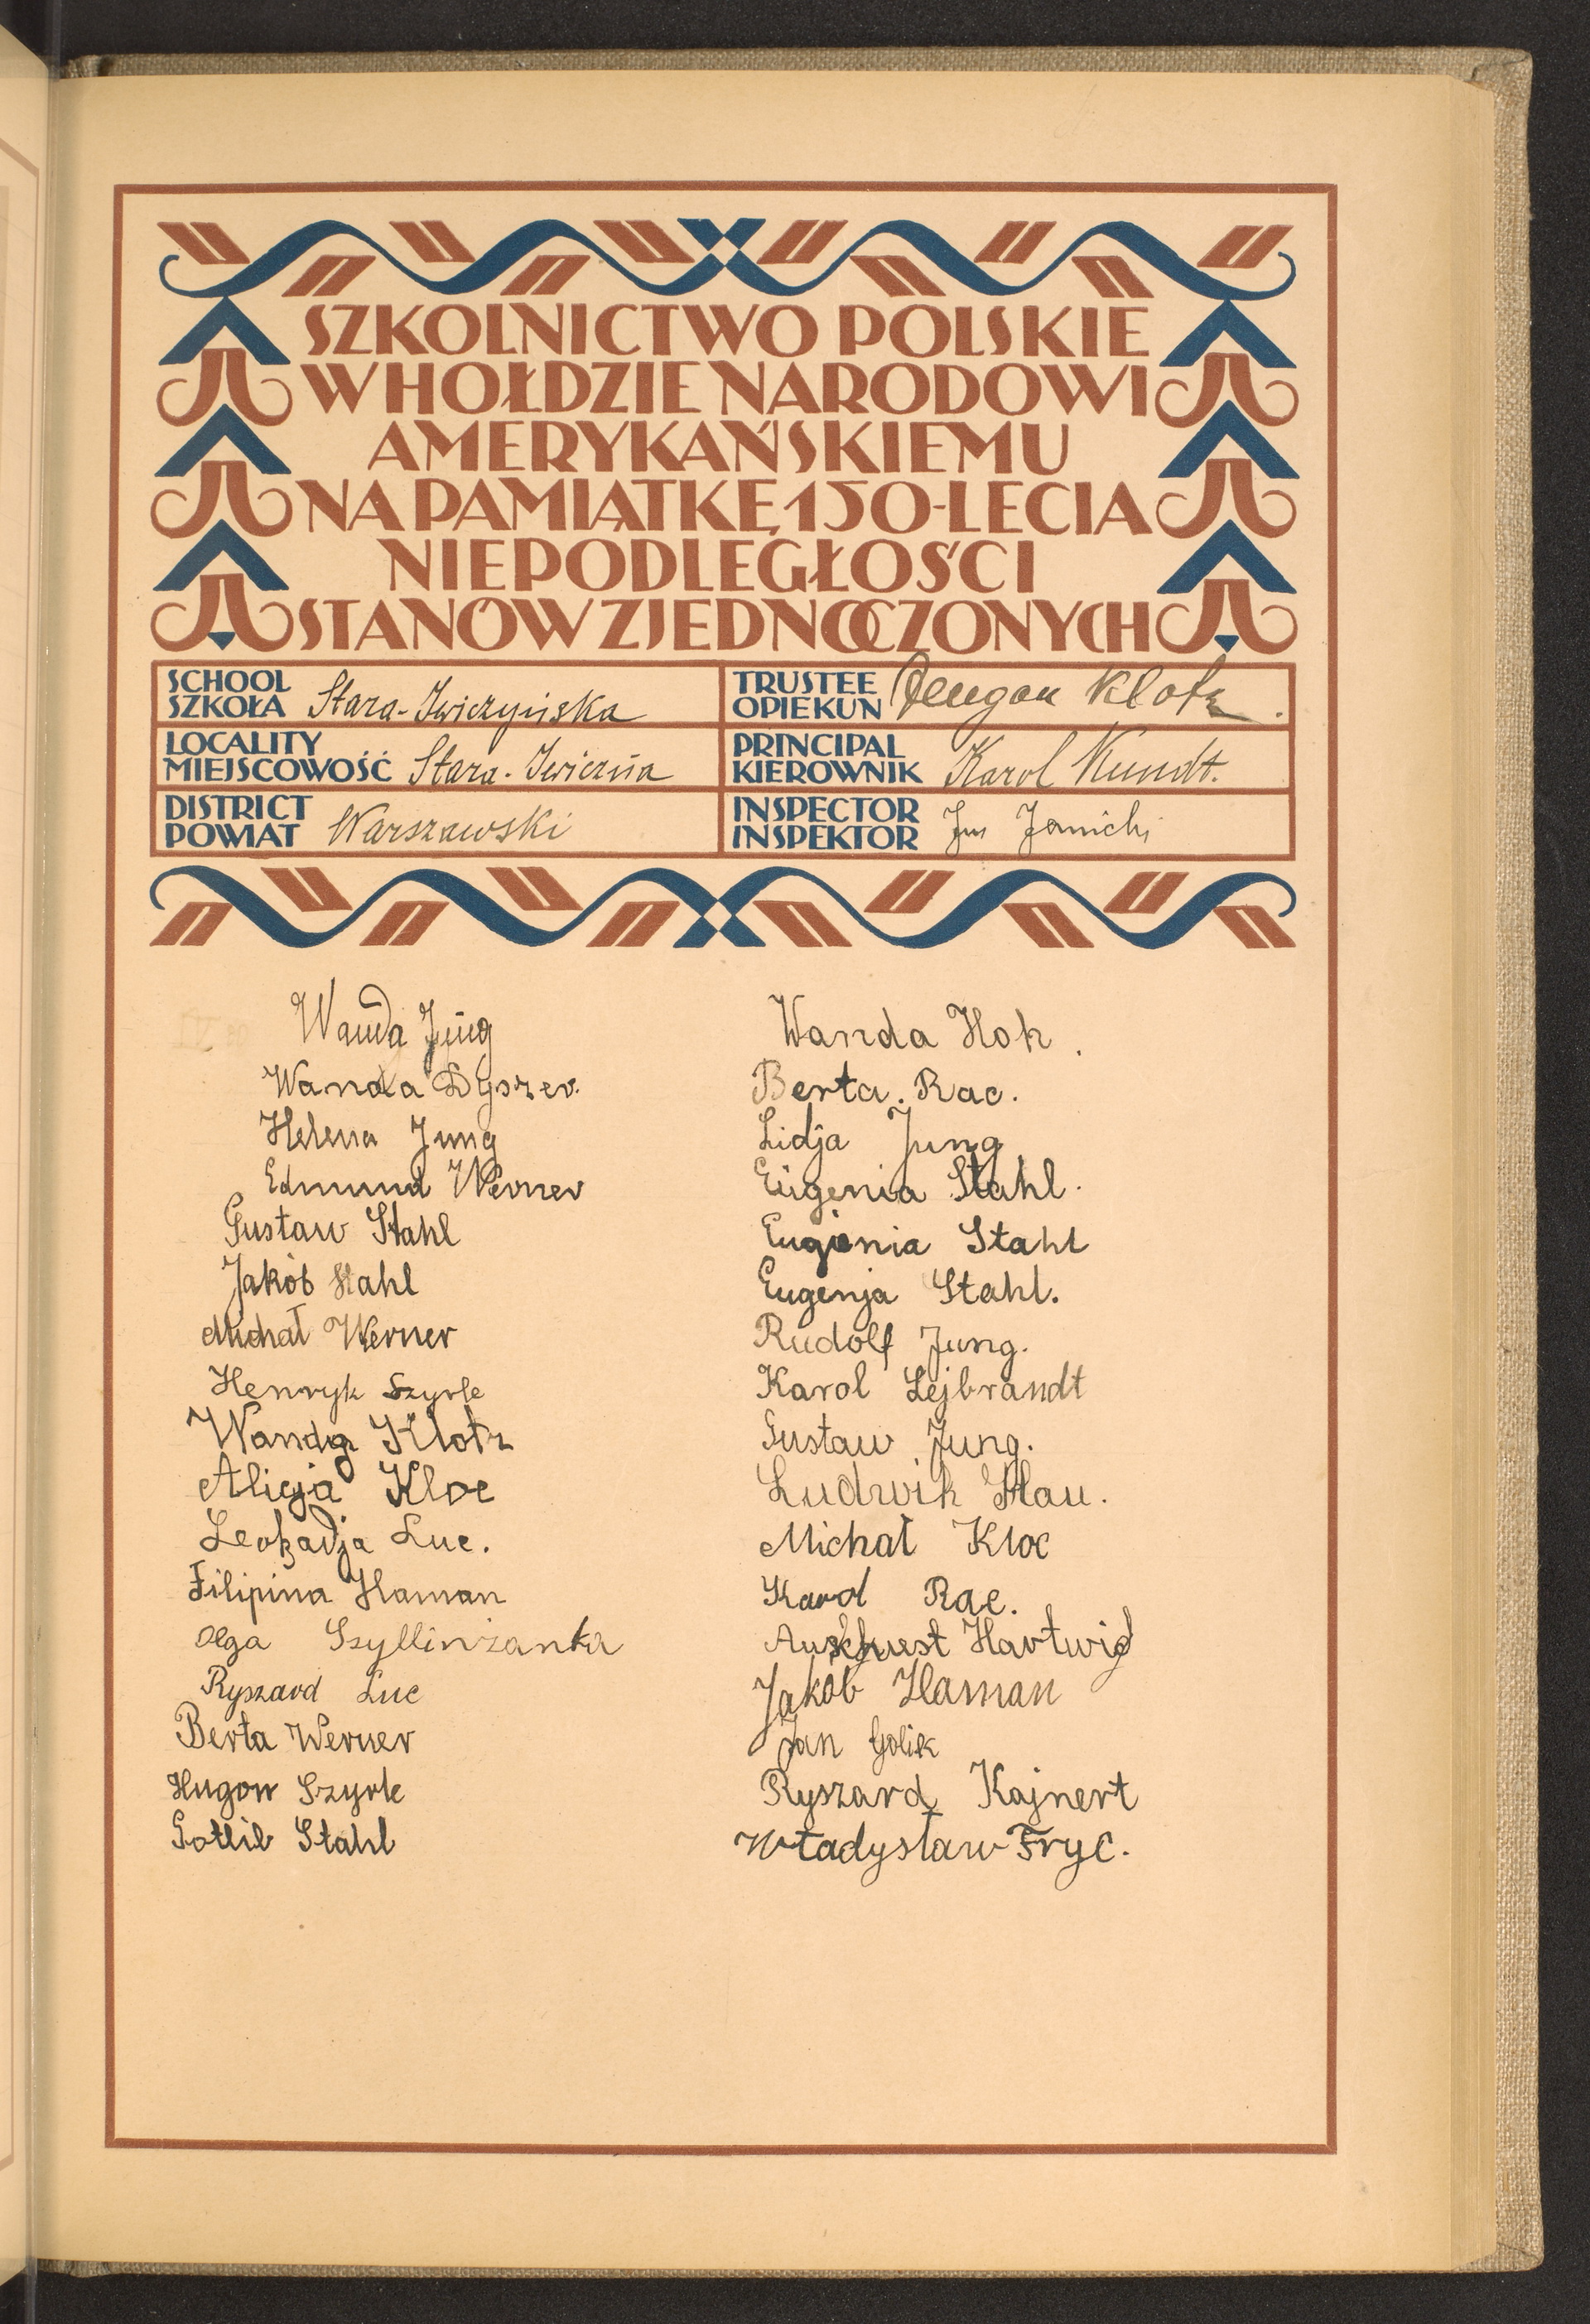 SZKOLNICTWO POLSKIE
W HOŁDZIE NARODOWI
AMERYKAŃSKIEMU
NA PAMIĄTKĘ 150-LECIA
NIEPODLEGŁOŚCI
STANÓW ZJEDNOCZONYCH
SCHOOL
SZKOŁA Stara-Iwiczyńska
TRUSTEE
OPIEKUN Klotz.
LOCALITY
MIEJSCOWOŚĆ Stara-Iwiczna
PRINCIPAL
KIEROWNIK Karol Kundt.
DISTRICT
POWIAT Warszawski
INSPECTOR
INSPEKTOR
Wanda Jung
Wanda Dyszer.
Helena Jung
Edmund Werner
Gustaw Stahl
Jakób Stahl
Michał Werner
Henryk Szyrle
Wanda Klotz
Alicja Kloc
Leokadja Luc.
Filipina Haman
Olga Szyllinżanka
Ryszard Luc
Berta Werner
Hugon Szyrle
Gotlib Stahl
Wanda Hok.
Berta. Rac.
Lidja Jung
Eugenia Stahl.
Eugenia Stahl
Eugenja Stahl.
Rudolf Jung.
Karol Lejbrandt
Gustaw Jung.
Ludwik Hau.
Michał Kloc
Karol Rac.
Hartwig
Jakób Haman
Jan Golik
Ryszard Kajnert
Władysław Fryc.